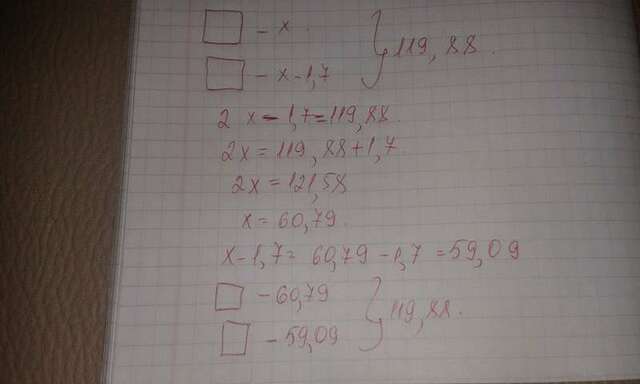 □ - x } 119,88.
□ - x - 1,7
2x - 1,7 = 119,88.
2x = 119,88 + 1,7.
2x = 121,58
x = 60,79.
x - 1,7 = 60,79 - 1,7 = 59,09
□ - 60,79 } 119,88.
□ - 59,09